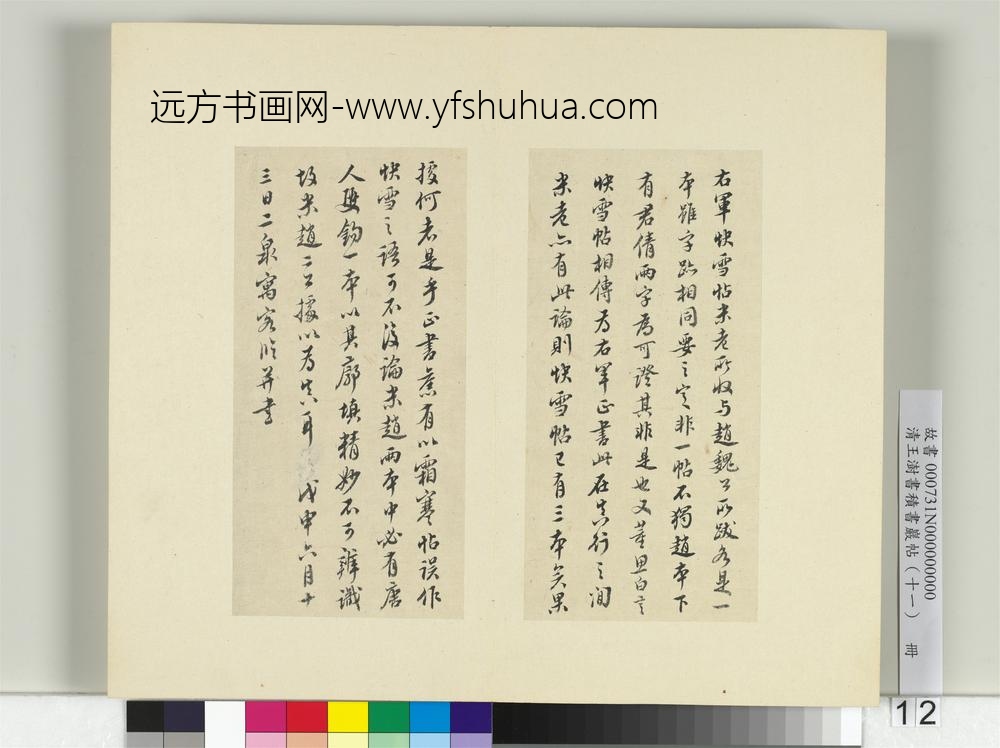 远方书画网-www.yfshuhua.com
右軍快雪帖米老所收与趙魏公所跋各是一
本雖字跡相同要之定非一帖不獨趙本下
有君倩兩字爲可證其非是也又董思白言
快雪帖相傳为右軍正書此在真行之間
米老亦有此論則快雪帖已有三本矣果
孰何者是乎正書蕉有以霜寒帖誤作
快雪之語可不復論米趙兩本中必有唐
人雙鈎一本以其廓填精妙不可辨識
故米趙二公據以为真耳 戊申六月十
三日二泉寓客临并書
故書 000731N000000000
清王澍書積書巖帖（十一） 冊
12